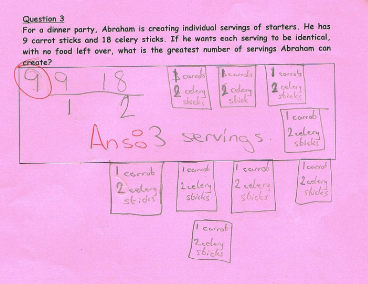 Question 3
For a dinner party, Abraham is creating individual servings of starters. He has
9 carrot sticks and 18 celery sticks. If he wants each serving to be identical,
with no food left over, what is the greatest number of servings Abraham can
create?
9 9 18
1 2
1 carrots
2 celery
sticks
1 carrots
2 celery
stick
1 carrot
2 celery
sticks
1 carrot
2 celery
sticks
Ans 3 servings.
1 carrot
2 celery
sticks
1 carrot
2 celery
sticks
1 carrot
2 celery
sticks
1 carrot
2 celery
sticks
1 carrot
2 celery
sticks